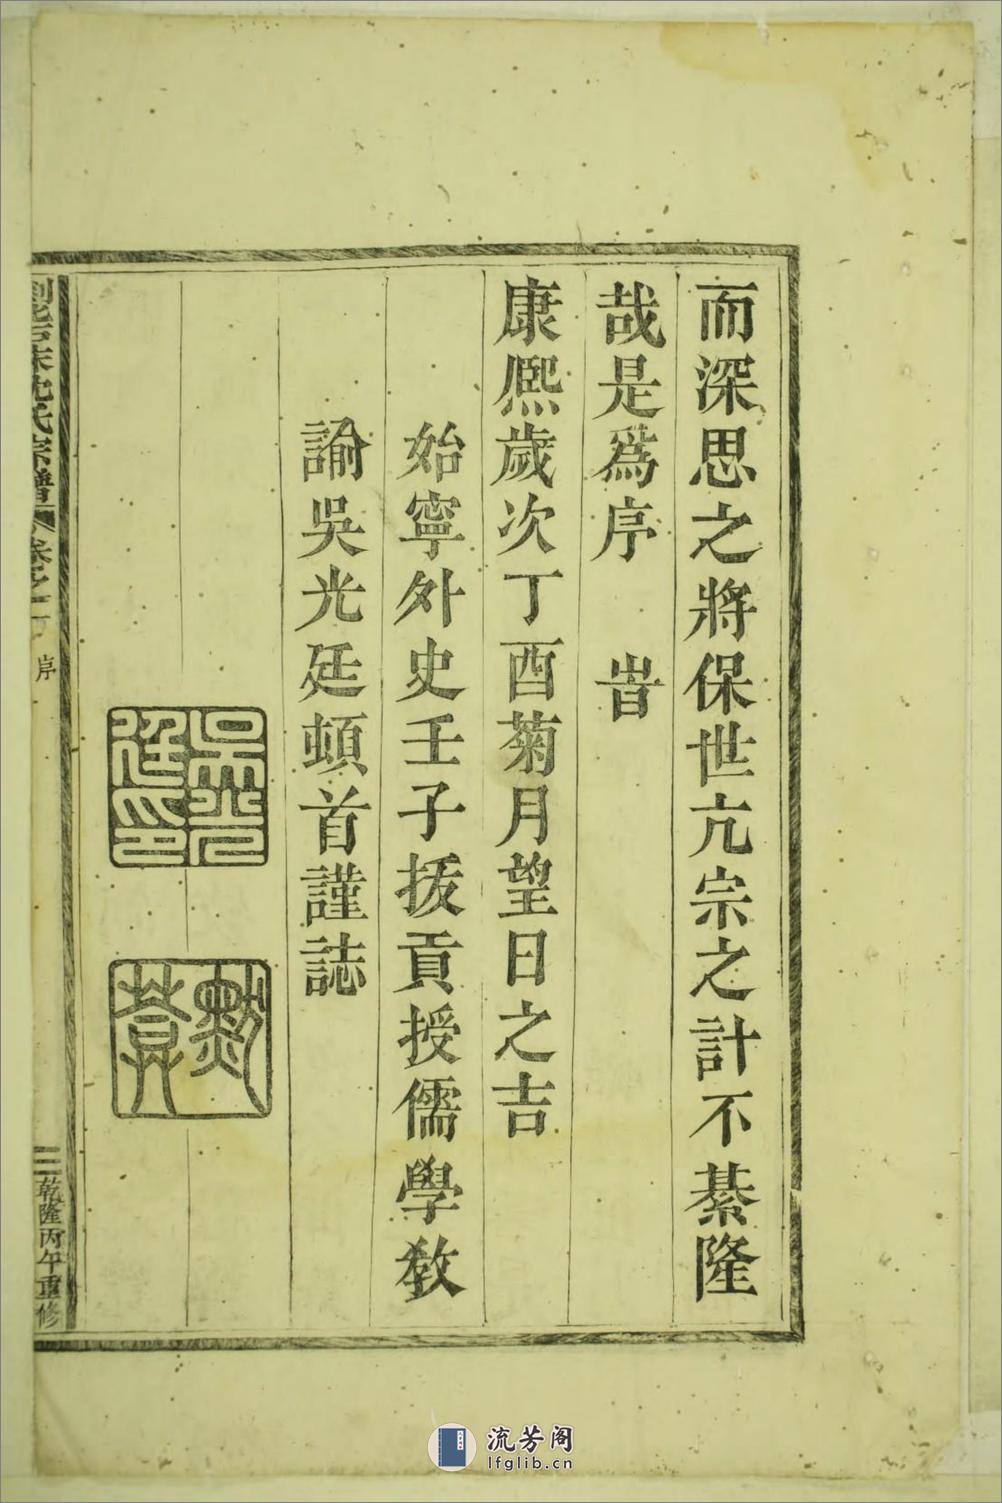 而深思之將保世亢宗之計不綦隆
哉是爲序 旹
康熈歲次丁酉菊月望日之吉
始寧外史壬子拔貢授儒學敎
諭吳光廷頓首謹誌
吳光廷印
沈氏宗譜 卷之一 序
三 乾隆丙午重修
流芳阁
lfglib.cn